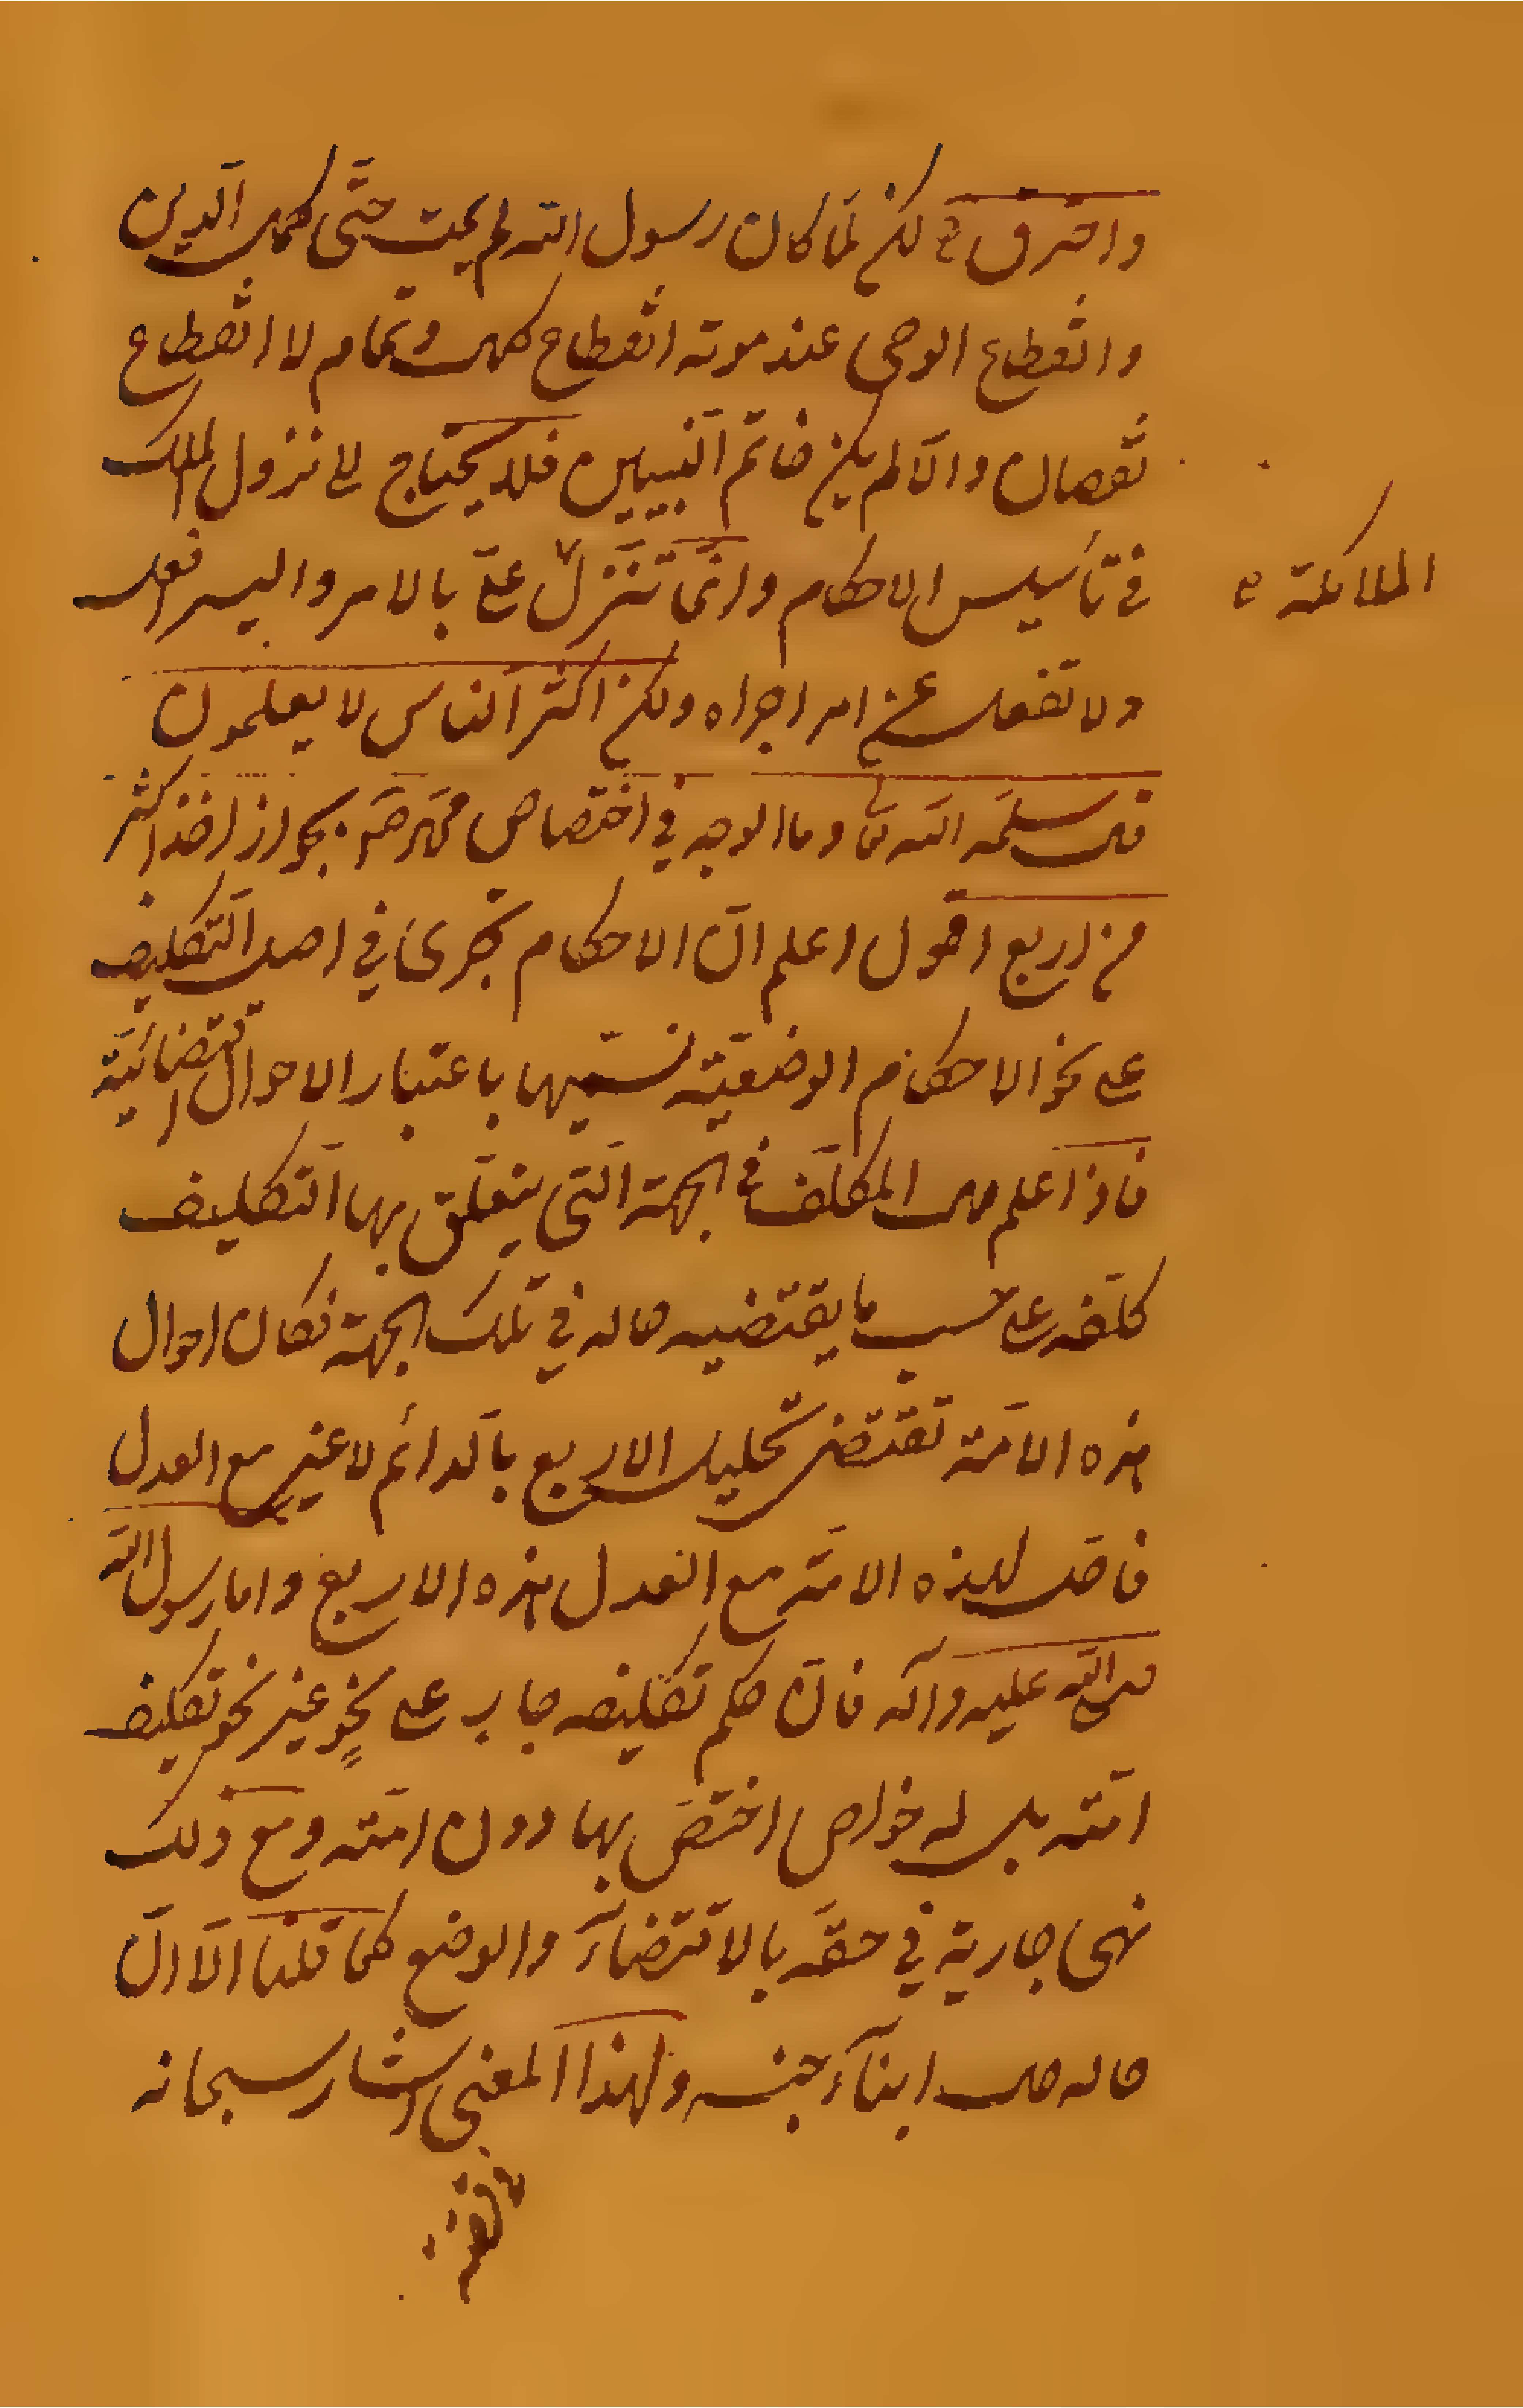 واحترق لكن لمّا كان رسول الله لم يمت حتّى كمل الدين
وانقطاع الوحى عند موته انقطاع كمال وتمام لا انقطاع
نقصان والّا لم يكن خاتم النّبيين فلا يحتاج الى نزول الملك
فى تأسيس الاحكام وانّما تتنزّل علىّ بالامر واليسر افعل
الملائكة
ولا تفعل عن امر اجراه ولكن اكثر النّاس لا يعلمون
قال سلّمه الله تعا وما الوجه فى اختصاص محمّد ص بجواز اخذ اكثر
من اربع اقول اعلم انّ الاحكام تجرى فى اصل التّكليف
على نحو الاحكام الوضعيّة نسمّيها باعتبار الاحوال اقتضائيّة
فاذا علم حال المكلّف فى الجهة الّتى يتعلّق بها التكليف
كلّفه على حسب ما يقتضيه حاله فى تلك الجهة فكان احوال
هذه الامّة تقتضى تحليل الاربع بالدائم لا غير مع العدل
فاحل لهذه الامّة مع العدل هذه الاربع واما رسول الله
صلى الله عليه وآله فانّ حكم تكليفه جار على نحوٍ غير نحو تكليف
امّته بل له خواص اختصّ بها دون امّته ومع ذلك
فهى جارية فى حقّه بالاقتضاء والوضع كما قلنا الّا انّ
حاله حال ابناء جنسه ولهذا المعنى اشار سبحانه